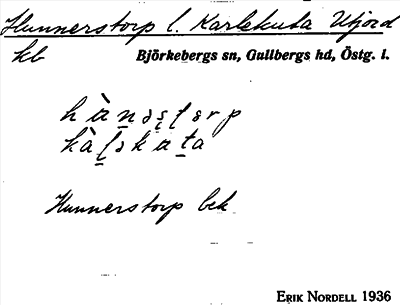 Hunnerstorp l. Karlekuta Utjord
kb
Björkebergs sn, Gullbergs hd, Östg. l.
Hunnerstorp bek.
ERIK NORDELL 1936